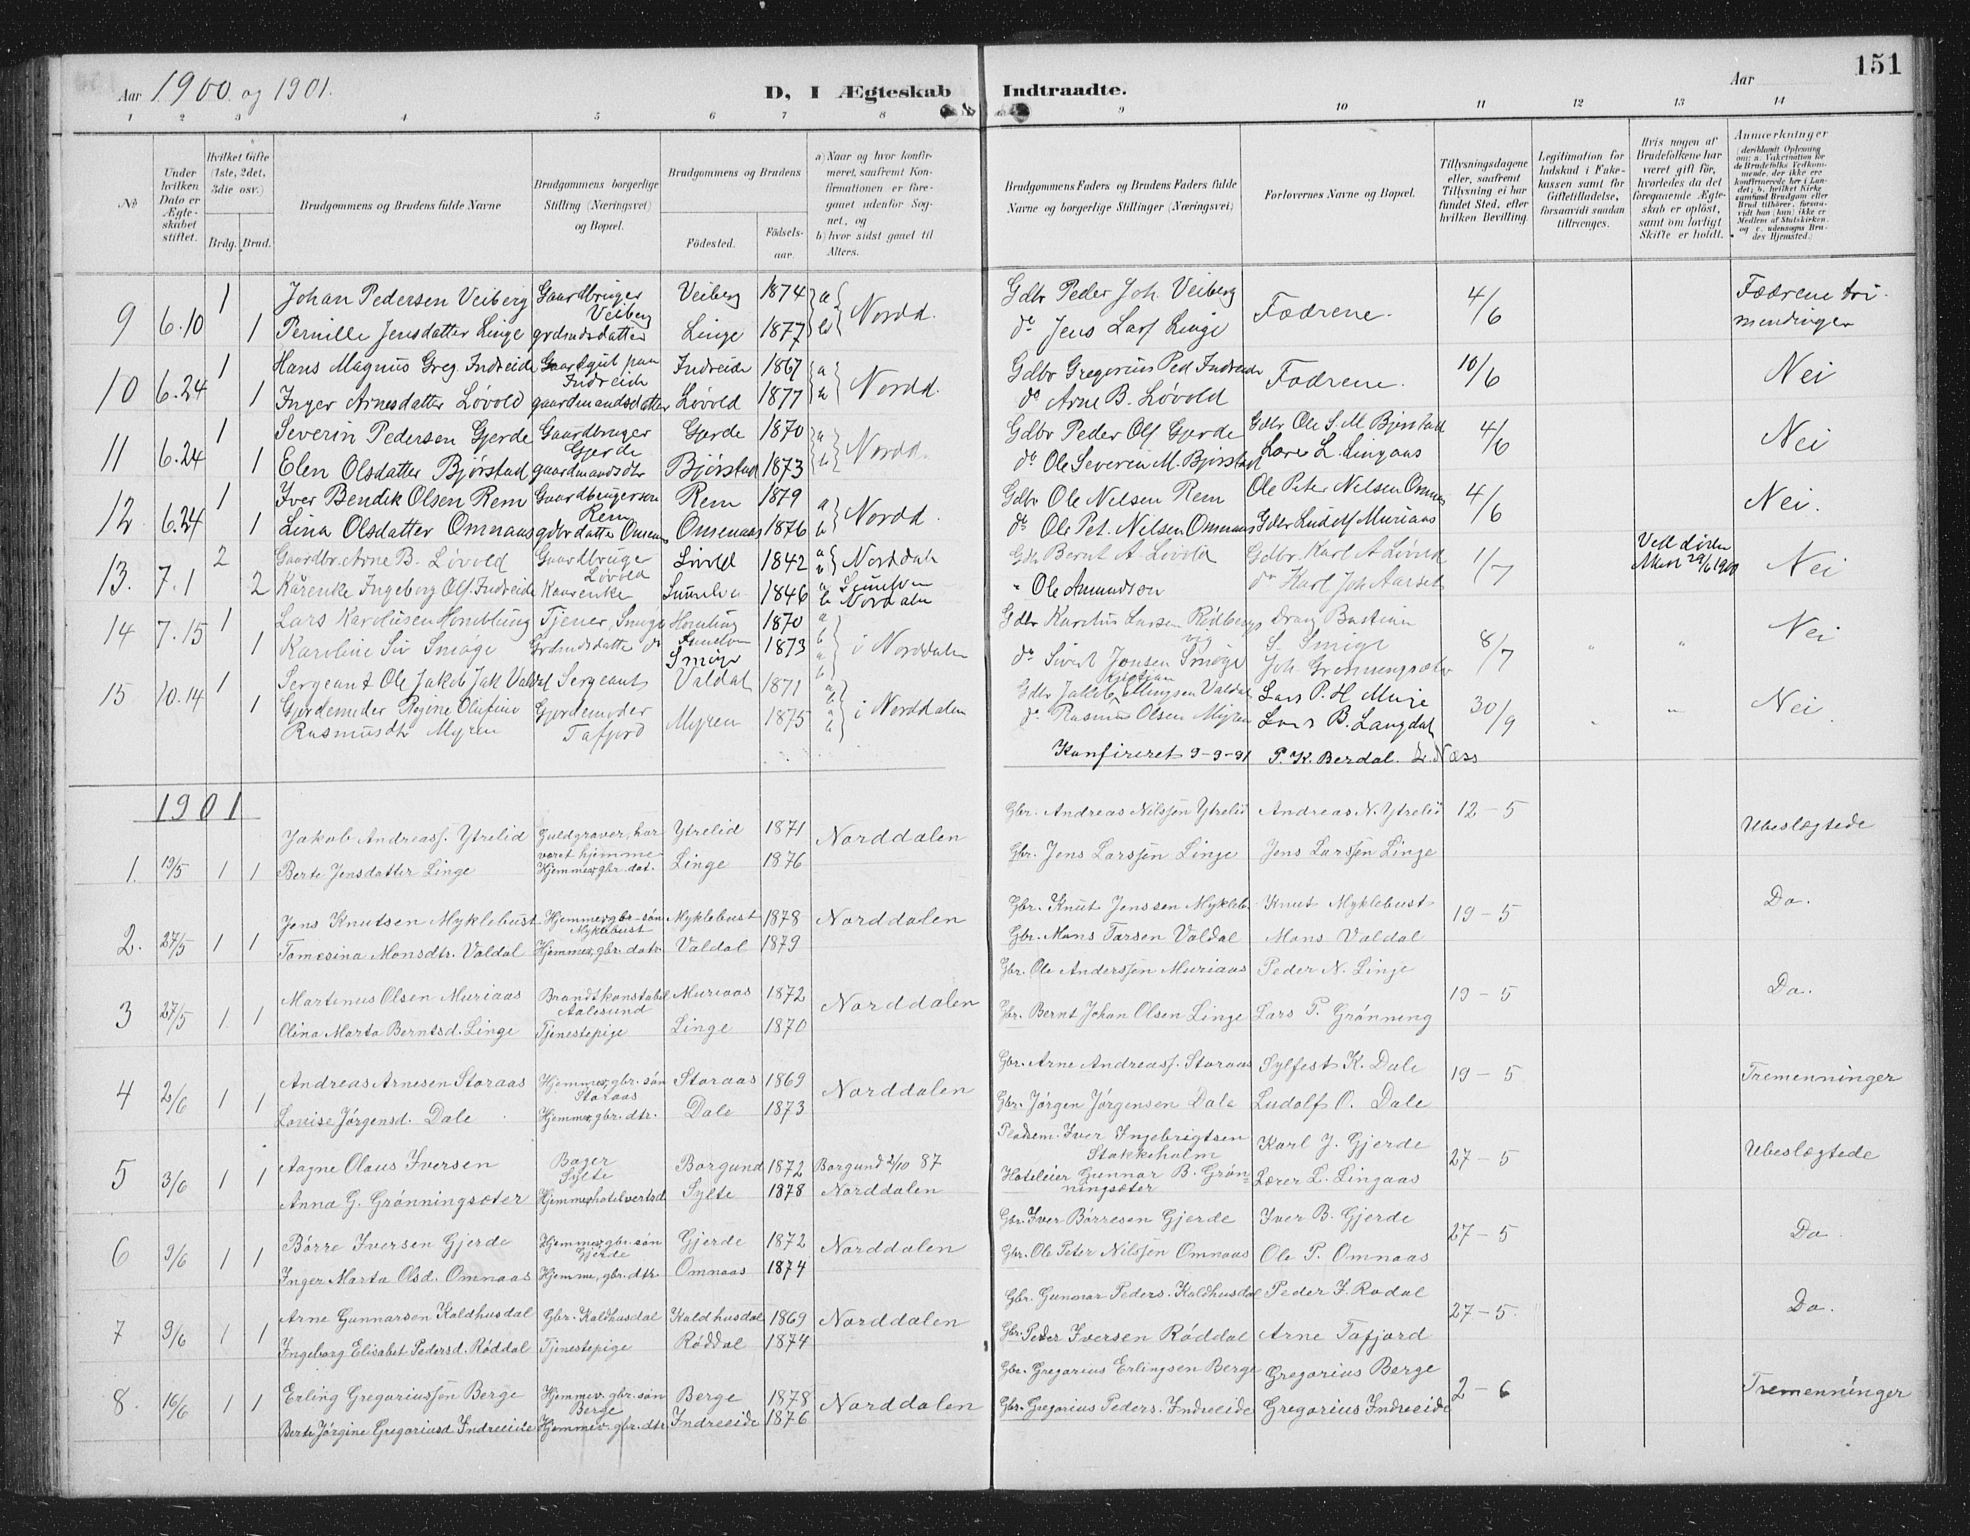 151
Aar 1900 og 1901.
D, I Ægteskab Indtraadte.
Aar
1 2 3 4 5 6 7 8 9 10 11 12 13 14
№
Under hvilken Dato er Ægteskabet stiftet.
Hvilket Gifte (1ste, 2det, 3die osv.)
Brdg. Brud.
Brudgommens og Brudens fulde Navne
Brudgommens borgerlige Stilling (Næringsvei) og Bopæl.
Brudgommens og Brudens
Fødested. Fødsels-aar.
a) Naar og hvor konfirmeret, saafremt Konfirmationen er foregaaet udenfor Sognet, og
b) hvor sidst gaaet til Alters.
Brudgommens Faders og Brudens Faders fulde Navne og borgerlige Stillinger (Næringsvei)
Forlovernes Navne og Bopæl.
Tillysningsdagene eller, saafremt Tillysning ei har fundet Sted, efter hvilken Bevilling.
Legitimation for Indskud i Fakekassen samt for Giftetilladelse, forsaavidt saadan tiltrænges.
Hvis nogen af Brudefolkene har været gift før, hvorledes da det foregaaende Ægteskab er opløst, samt om lovligt Skifte er holdt.
Anmærkninger
9 6.10 1 Johan Pedersen Veiberg Gaardbruger Veiberg Veiberg 1874 a Nordd. Gdbr Peder Joh. Veiberg Fædrene. 4/6 Fædrene tri-
1 Pernille Jensdatter Linge grdmdsdatter Linge 1877 b do Jens Lars Linge mendinger
10 6.24 1 Hans Magnus Greg. Indreide Gaardgut paa Indreide Indreide 1867 a Nordd. Gdbr Gregorius Ped Indreide Fædrene. 10/6 Nei
1 Inger Arnesdatter Løvold gaardmandsdatter Løvold 1877 b do Arne B. Løvold
11 6.24 1 Severin Pedersen Gjerde Gaardbruger Gjerde Gjerde 1870 a Nordd. Gdbr Peder Ols Gjerde Gdbr Ole S. M. Bjørstad 4/6 Nei
1 Elen Olsdatter Bjørstad gaardmandsdtr Bjørstad 1873 b do Ole Severin M. Bjørstad Lærer L. Lingaas
12 6.24 1 Iver Bendik Olsen Rem Gaardbrugersøn Rem Rem 1879 a Nordd. Gdbr Ole Nilsen Rem Ole Peter Nilsen Omnas 4/6 Nei.
1 Lina Olsdatter Omnaas gdbrdatter Omnaas Omenaas 1876 b do Ole Pet. Nilsen Omnaas Gdbr Ludolf Muriaas
13. 7.1 2 Gaardbr. Arne B. Løvold Gaardbruger Løvold Løvold 1842 a b Norddal Gdbr Bernt A Løvold Gdbr. Karl A Løvold 1/7 Nei
2 Karenke Ingeborg Ols. Indreide Kaarenke 1846 a b Norddalen Ole Amundsen do Karl Joh Aarset
14 7.15 1 Lars Karolusen Homblung Tjener, Smøge 1870 a b i Norddalen Gdbr Karolus Larsen 8/7 " " Nei
1 Karoline Siv Smøge Grdmdsdatter do Smøge 1873 a b do Sivert Jonsen Smøge S. Smøge Joh. Grønningsæter
15 10.14 1 Sergeant Ole Jakob Jak Valdal Sergeant Valdal 1871 a b i Norddalen Gdbr Jakob Valdal Lars P. H. Muge 30/9 " " Nei
1 Gjordemoder Regine Olufine Rasmusdtr Myren Gjordemoder Tafjord Myren 1875 a b do Rasmus Olsen Myren Lars B. Langdal
Konfireret 9-9-91 P. K. Berdal. L. Næss
1901
1. 19/5 1 1 Jakob Andreass. Ytrelid Guldgraver, har været hjemme Ytrelid 1871 Norddalen Gbr. Andreas Nilssen Ytrelid Andreas N. Ytrelid 12-5 Ubeslægtede
Berte Jensdatter Linge Hjemmev, gbr. dat. Linge 1876 Gbr. Jens Larssen Linge Jens Larssen Linge
2. 27/5 1 1 Jens Knutsen Myklebust Hjemmev, gbr-søn Myklebust Myklebust 1878 Norddalen Gbr. Knut Jenssen Mykleb. Knut Myklebust 19-5 Do.
Tomesina Monsdtr. Valdal Hjemmev, gbr. datr. Valdal 1879 Gbr. Mons Tarsen Valdal Mons Valdal
3 27/5 1 1 Martinus Olsen Muriaas Brandtkonstabel Aalesund Muriaas 1872 Norddalen Gbr. Ole Anderssen Muriaas Peder N. Linge 19-5 Do.
Olina Marta Berntsd. Linge Tjenestepige Linge 1870 Gbr. Bernt Johan Olsen Linge Lars P. Grønning
4 2/6 1 1 Andreas Arnesen Storaas Hjemmev, gbr. søn Storaas Storaas 1869 Norddalen Gbr. Arne Andreass. Storaas Sylfest K. Dale 19-5 Tremenninger
Lovise Jørgensd. Dale Hjemmev, gbr. dtr. Dale 1873 Gbr. Jørgen Jørgensen Dale Ludolf O. Dale
5 3/6 1 1 Aagne Olaus Iversen Bager Sylte Borgund 1872 Borgund 2/10 87 Pladsem. Iver Ingebrigtsen Stokkeholm Karl J. Gjerde 27-5 Ubeslægtede
Anna G. Grønningsæter Hjemmev, hotelvertsd. Sylte 1878 Norddalen Hoteleier Gunnar B. Grønningsæter Lærer L. Lingaas
6 9/6 1 1 Børre Iversen Gjerde Hjemmev, gbr. søn Gjerde Gjerde 1872 Norddalen Gbr. Iver Børresen Gjerde Iver B. Gjerde 27-5 Do.
Inger Marta Olsd. Omnaas Hjemmev, gbr. dtr. Omnaas 1874 Gbr. Ole Peter Nilssen Omnaas Ole P. Omnaas
7 9/6 1 1 Arne Gunnarsen Kaldhusdal Gbr. Kaldhusdal Kaldhusdal 1869 Norddalen Gbr. Gunnar Peders. Kaldhusdal Peder I. Rødal 27-5 Do.
Ingeborg Elisabet Pedersd. Røddal Tjenestepige Røddal 1874 Gbr. Peder Iversen Røddal Arne Tafjord
8. 16/6 1 1 Erling Gregoriussen Berge Hjemmev. gbr. søn Berge Berge 1878 Norddalen Gbr. Gregorius Erlingsen Berge Gregorius Berge 2-6 Tremenninger
Berte Jørgine Gregoriusd. Indreeide Hjemmev. gbr. dtr. Indreeide 1876 Gbr. Gregorius Peders. Indreeide Gregorius Indreeide